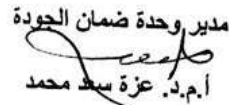 مدير وحدة ضمان الجودة
أ.م.د. عزة سعد محمد